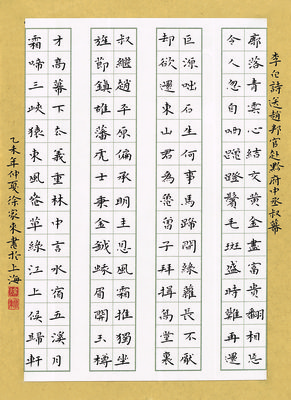 李白詩送趙判官赴黔府中丞叔幕
廓落青雲心結交黃金盡富貴翻相忘
令人忽自哂蹭蹬鬢毛斑盛時難再還
巨源咄石生何事馬蹄間綠蘿長不厭
却欲還東山君為魯曾子拜揖高堂裏
叔繼趙平原偏承明主恩風霜推獨坐
旌節鎮雄藩虎士秉金鉞蛾眉開玉樽
才高幕下去義重林中言水宿五溪月
霜啼三峽猿東風春草綠江上候歸軒
乙未年仲夏徐家東書於上海